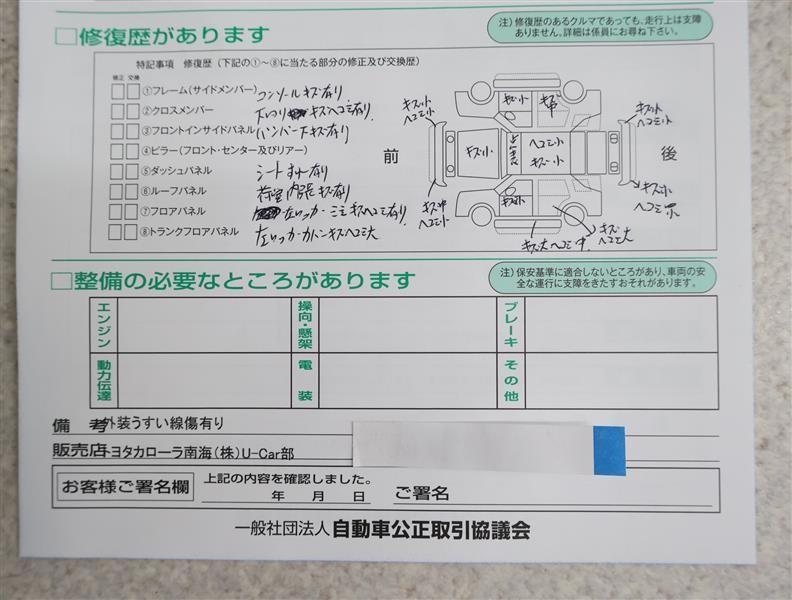 □修復歴があります
注）修復歴のあるクルマであっても、走行上は支障
ありません。詳細は係員にお尋ね下さい。
特記事項 修復歴（下記の①～⑧に当たる部分の修正及び交換歴）
修正 交換
①フレーム（サイドメンバー） コンソールキズ有り
②クロスメンバー キズヘコミ有り
③フロントインサイドパネル バンパー下キズ有り
④ピラー（フロント・センター及びリアー）
⑤ダッシュパネル シート 有り
⑥ルーフパネル 荷室内張キズ有り
⑦フロアパネル キズヘコミ有り
⑧トランクフロアパネル キズヘコミ大
前
後
キズ小
ヘコミ小
キズ小
キズ小
ヘコミ小
キズ小
キズ小
ヘコミ小
キズ中
ヘコミ小
キズ小
キズ小
キズ大ヘコミ中
キズ
ヘコミ大
□整備の必要なところがあります
注）保安基準に適合しないところがあり、車両の安
全な運行に支障をきたすおそれがあります。
エンジン
操向・懸架
ブレーキ
動力伝達
電装
その他
備考 外装うすい線傷有り
販売店 トヨタカローラ南海（株）U-Car部
お客様ご署名欄
上記の内容を確認しました。
年 月 日 ご署名
一般社団法人 自動車公正取引協議会